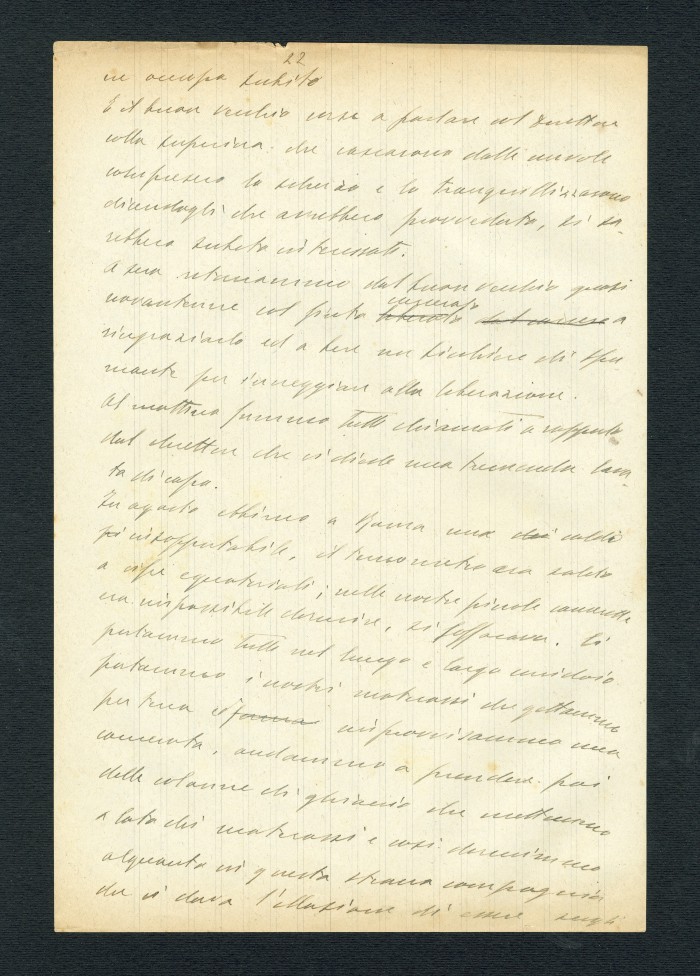 22
ne occupa subito
E il buon vecchio corse a parlare col direttore
colla superiora: che cascarono dalle nuvole
compresero lo scherzo e lo tranquillizzarono
dicendogli che avrebbero provveduto, si sa-
rebbero subito interessati.
A sera ritornammo dal buon vecchio quasi
novantenne col finto liberato carcerato dal carcere a
ringraziarlo ed a bere un bicchiere di spu
mante per inneggiare alla liberazione.
Al mattino fummo tutti chiamati a rapporto
dal direttore che ci diede una tremenda lava
ta di capo.
In agosto ebbimo a Roma una dei caldi
insopportabile, il termometro era salito
a cifre equatoriali; nelle nostre piccole camerette
era impossibile dormire, si soffocava. Ci
portammo tutti nel lungo e largo corridoio
portammo i nostri materassi che gettammo
per terra e improvvisammo una
camerata, andammo a prendere poi
delle colonne di ghiaccio che mettemmo
a lato dei materassi e così dormimmo
alquanto in questa strana compagnia
che ci dava l'illusione di essere negli